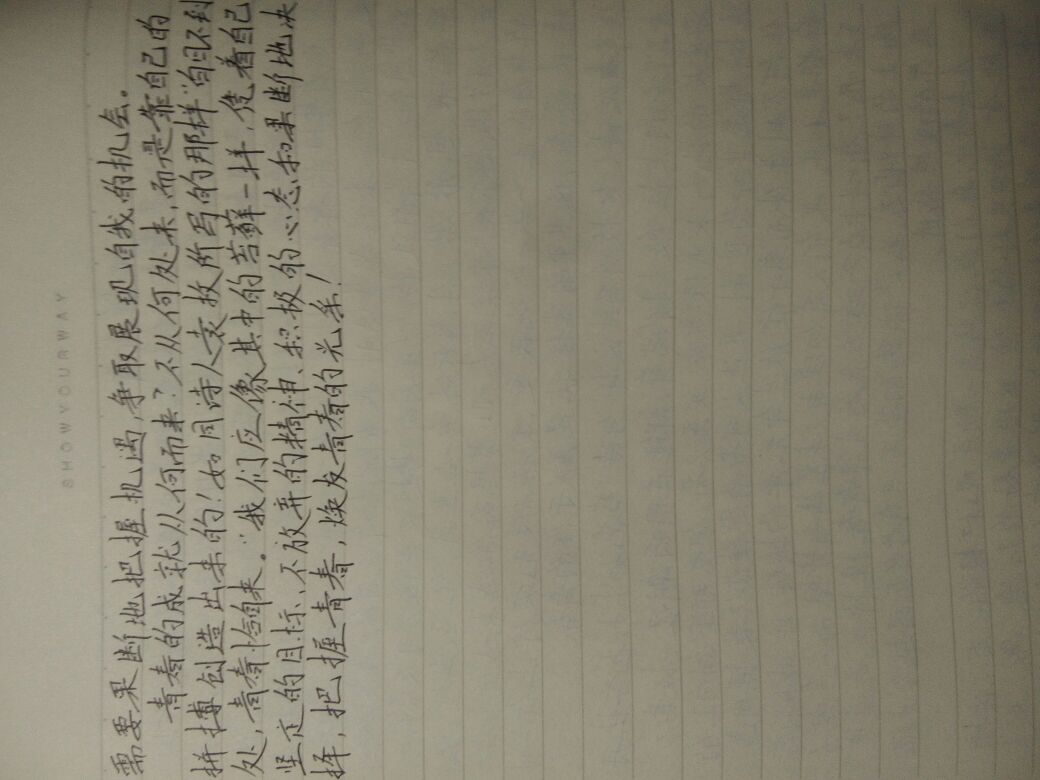 SHOWYOURWAY
需要果断地把握机遇,争取展现自我的机会。
青春的成就从何而来?不从何处来,而是靠自己的
拼搏创造出来的!如同诗人袁枚所写的那样“白日不到
处,青春恰自来。”我们应像其中的苔藓一样,凭着自己
坚定的目标、不放弃的精神、积极的心态和果断地决
择,把握青春,焕发青春的光系!